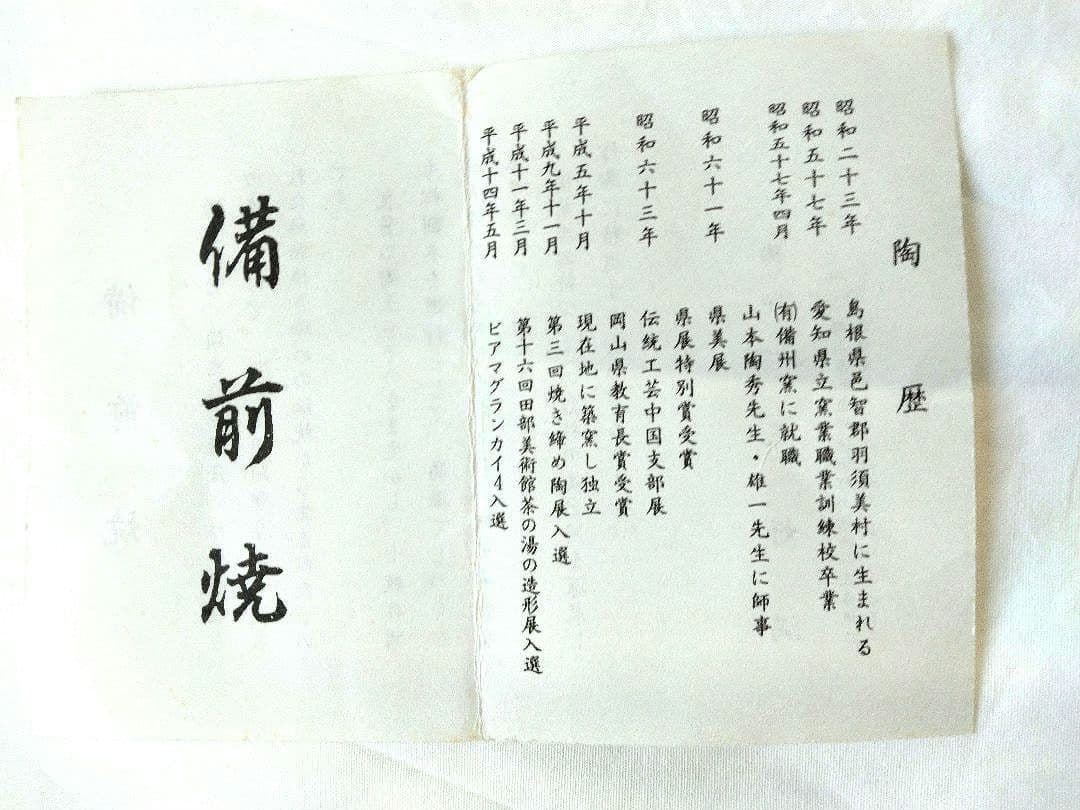 陶歴
昭和二十三年 島根県邑智郡羽須美村に生まれる
昭和五十七年 愛知県立窯業職業訓練校卒業
昭和五十七年四月 ㈲備州窯に就職
山本陶秀先生・雄一先生に師事
昭和六十一年 県美展
県展特別賞受賞
昭和六十三年 伝統工芸中国支部展
岡山県教育長賞受賞
平成五年十月 現在地に築窯し独立
平成九年十一月 第三回焼き締め陶展入選
平成十一年三月 第十六回田部美術館茶の湯の造形展入選
平成十四年五月 ビアマグランカイ4入選
備前焼